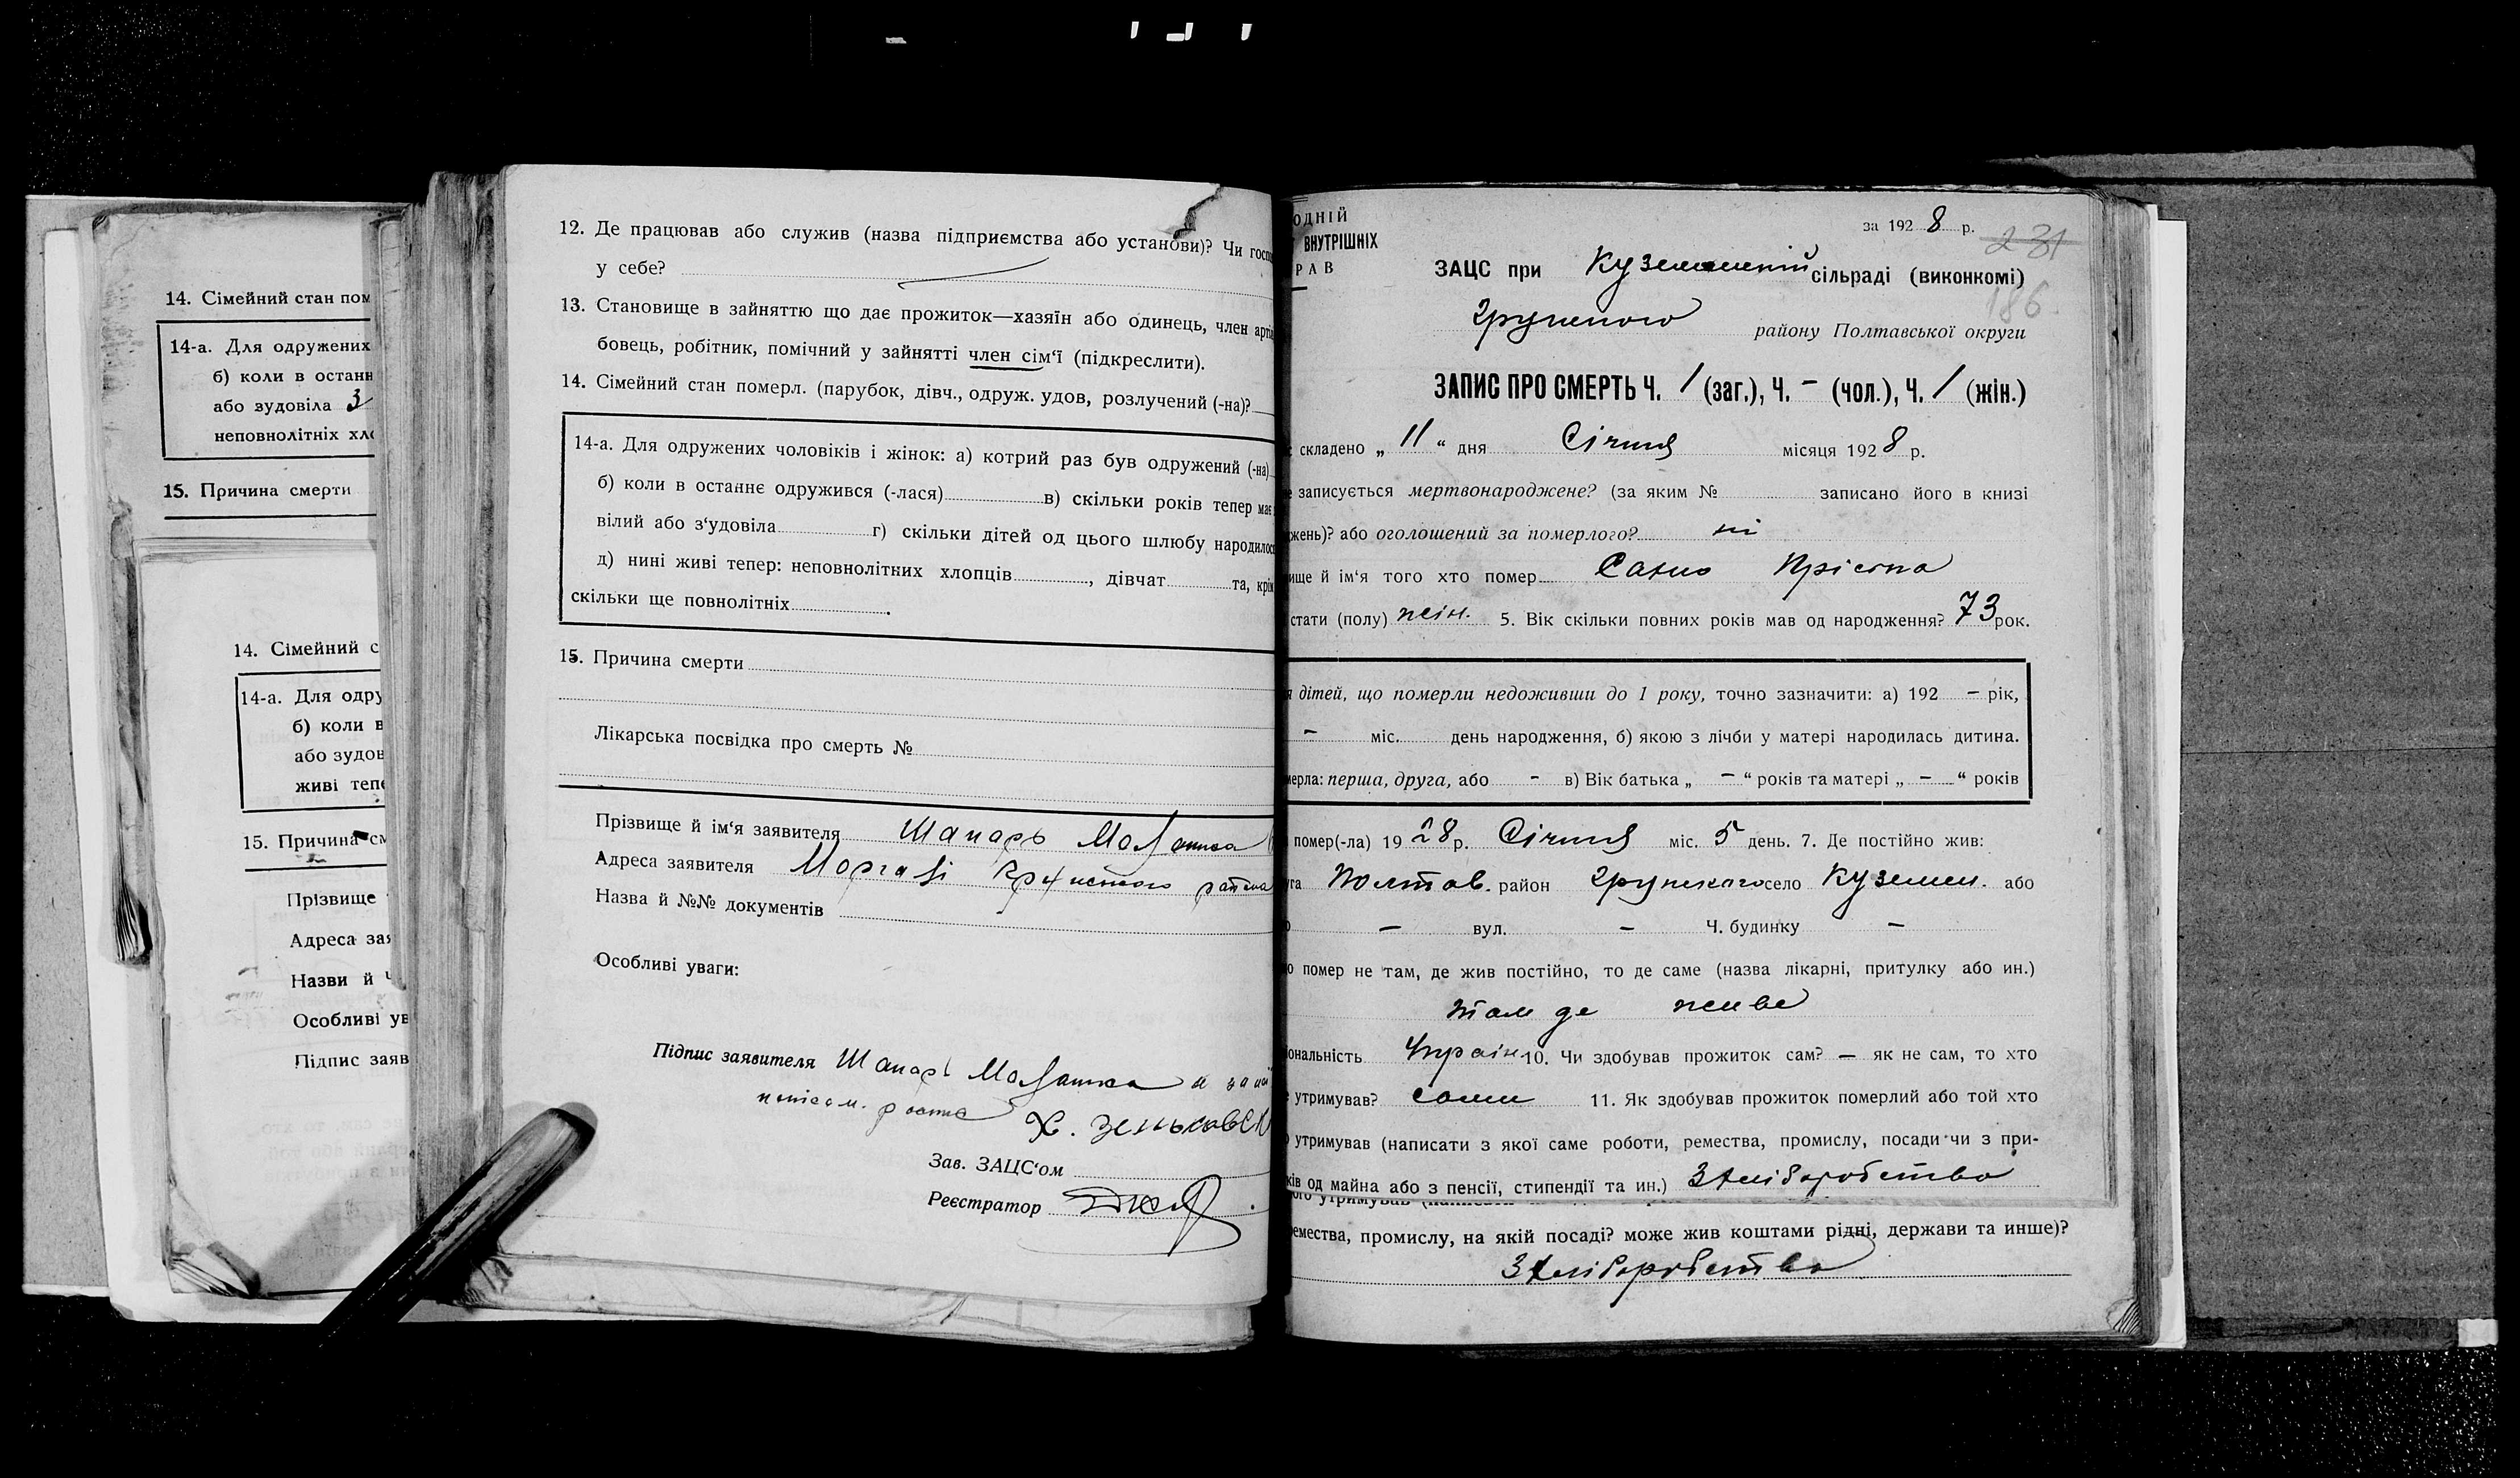 14. Сімейний стан пом
14-а. Для одружених
б) коли в останн
або зудовіла 3
неповнолітніх хл
15. Причина смерти
14. Сімейний с
14-а. Для одру
б) коли в
або зудов
живі тепе
15. Причина см
Прізвище
Адреса зая
Назви й Ч
Особливі ув
Підпис заяв
12. Де працював або служив (назва підприємства або установи)? Чи госпо
у себе?
13. Становище в зайняттю що дає прожиток—хазяїн або одинець, член арті
бовець, робітник, помічний у зайнятті член сім'ї (підкреслити).
14. Сімейний стан померл. (парубок, дівч., одруж. удов, розлучений (-на)?
14-а. Для одружених чоловіків і жінок: а) котрий раз був одружений (-на)
б) коли в останнє одружився (-лася) в) скільки років тепер має
вілий або з'удовіла г) скільки дітей од цього шлюбу народилос
д) нині живі тепер: неповнолітних хлопців , дівчат та, крім
скільки ще повнолітніх .
15. Причина смерти
Лікарська посвідка про смерть №
Прізвище й ім'я заявителя Шапарь
Адреса заявителя
Назва й №№ документів
Особливі уваги:
Підпис заявителя Шапарь
Х. Зеньковск
Зав. ЗАЦС'ом
Реєстратор
ОДНІЙ
ВНУТРІШНІХ
РАВ
за 1928 р.
231
186
ЗАЦС при Куземенській сільраді (виконкомі)
Грунського району Полтавської округи
ЗАПИС ПРО СМЕРТЬ Ч. 1 (заг.), Ч. – (чол.), Ч. 1 (жін.)
складено „ 11 “ дня Січня місяця 1928 р.
записується мертвонароджене? (за яким № записано його в книзі
жень)? або оголошений за померлого? ні
ище й ім'я того хто помер Сахно Прісtка
стати (полу) жін. 5. Вік скільки повних років мав од народження? 73 рок.
дітей, що померли недоживши до 1 року, точно зазначити: а) 192 – рік,
– міс. день народження, б) якою з лічби у матері народилась дитина.
мерла: перша, друга, або - в) Вік батька „ – “ років та матері „ – “ років
помер(-ла) 1928 р. Січня міс. 5 день. 7. Де постійно жив:
га Полтав. район Грунського село Куземен. або
– вул. – Ч. будинку –
о помер не там, де жив постійно, то де саме (назва лікарні, притулку або ин.)
там де живе
іональність Україн. 10. Чи здобував прожиток сам? — як не сам, то хто
утримував? сама 11. Як здобував прожиток померлий або той хто
утримував (написати з якої саме роботи, ремества, промислу, посади чи з при-
ків од майна або з пенсії, стипендії та ин.) З хліборобства
емества, промислу, на якій посаді? може жив коштами рідні, держави та инше)?
З хліборобства